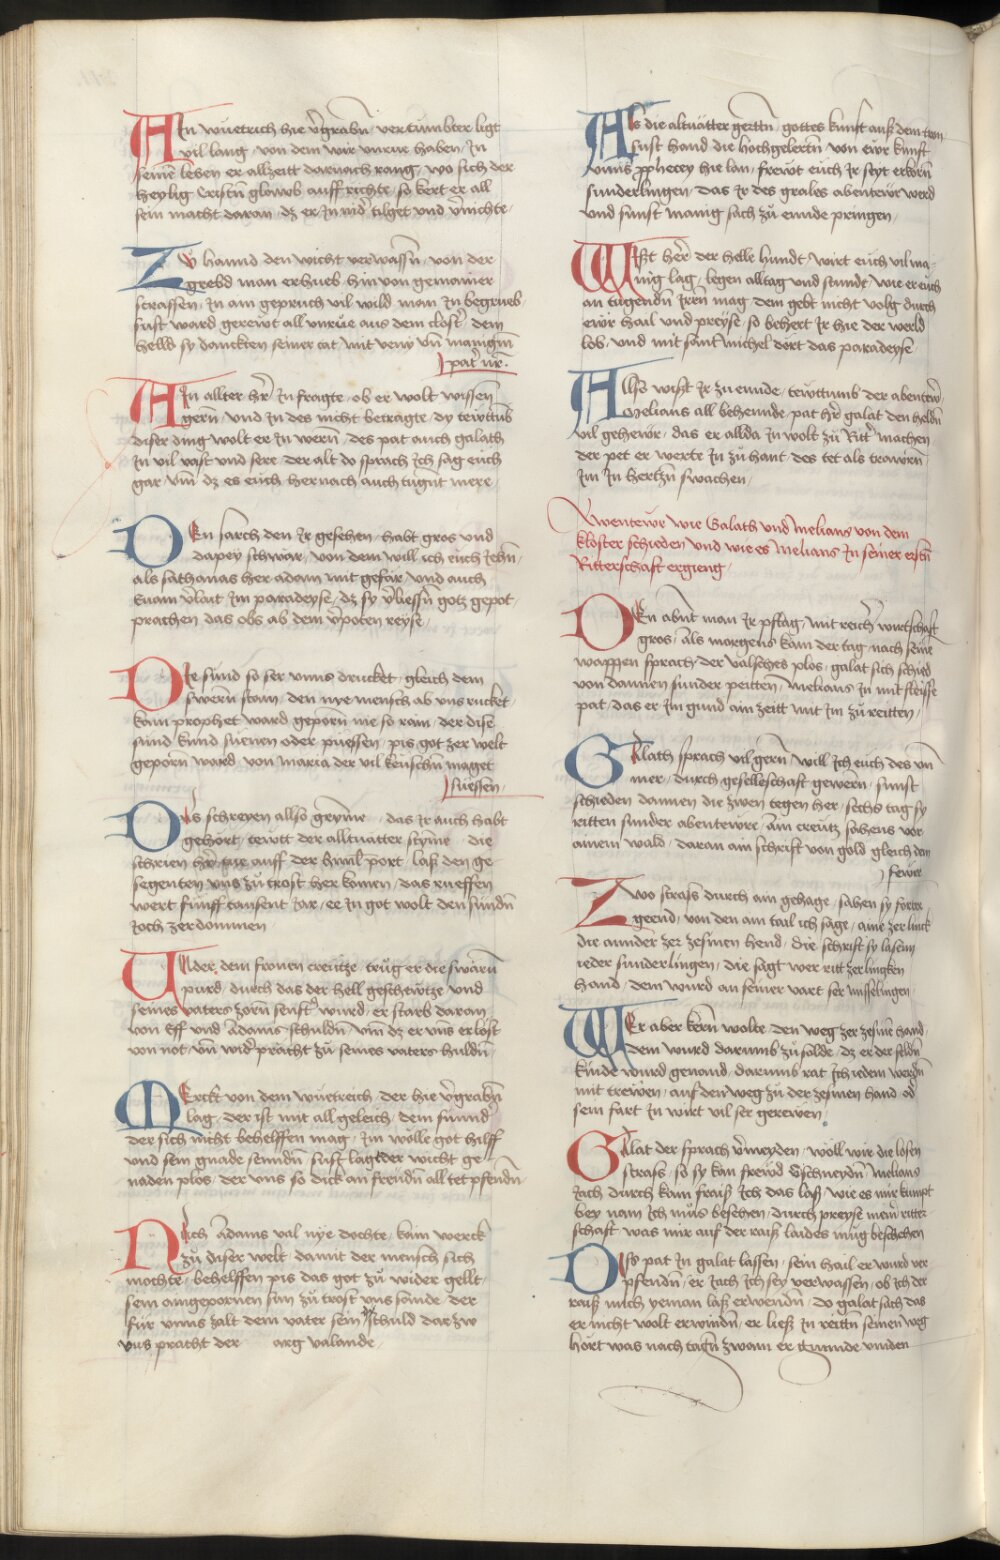 AIn wuetrich hie v̄graben vertumbter ligt
vil lang / von dem wir unrue haben / In
seinē leben er allzeitt darnach rang / wo sich der
heylig Cristn̄ glawb auffrichte / so kert er all
sein macht daran / dz er In nid' tilget und v̄nichte /
ZV hannd den wicht verwassn̄ / von der
grebd man erhueb / hin von gemainer
strassen / In ain gepruch vil wild man In begrueb
sust ward gerewt all unrue aus dem closter / dem
helld sy danckten seiner tat mit veny vn̄ manigm̄
pat' nr̄ /
AIn allter h'r In fragte / ob er wolt wissen
gern / Vnd In des nicht betragte / dy tewttūb
diser ding wolt er In wern̄ / des pat auch galath
In vil vast und sere / der alt do sprach Ich sag euch
gar / vm̄ dz es euch hernach auch tugnt mere /
DEn sarch den Ir gesehen / habt gros und
dapey schwar / von dem will ich euch Iehn̄ /
als sathanas her adam mit gefar / und auch
Euam v̄lait Im paradeyse / dz sy v̄liessn̄ gotz gepot /
prachen das obs ab dem v̄poten reyse /
DIe sund so ser vnns drucket / gleich dem
swern̄ stain / den nye mensch ab vns rucket /
kain prophet ward geporn nie so rain / der dise
sund kund suenen oder puessen / pis got zer welt
geporn̄ ward / von maria der vil keuschn̄ maget
suessen /
DIs schreyen allso geyme / das Ir auch habt
gehort / tewtt der alltuatter styme / die
schrien her fur auff der himl port / lass den ge
segenten vns zu trost her komen / das rueffen
wert funff tausent Iar / er In got wolt den sundn̄
Ioch zerdommen
VNder dem fronen creutze / trug er die swarn̄
purd / durch das der hell gescheutze vnd
seines vaters zorn̄ senft' wurd / er starb daran
von Eff vnd Adams schuldn̄ / vm̄ dz er vns erlost
von not / vn̄ wid' pracht zu seines vaters huldn̄ /
MErckt von dem wuetreich / der hie v̄grabn̄
lag / der ist mit all geleich / dem sunnd'
der sich nicht behelffen mag / Im wolle got hilff
und sein gnade senndn̄ / sust lag der wicht ge
naden plos / der vns so dick an freudn̄ all tet pfendn̄
NIch Adams val nye dochte / kain werck
zu diser welt / damit der mensch sich
mochte / behelffen pis das got zu wider gellt /
sein aingepornen sun zu trost vns sande / der
fur vnns zalt dem vater sein schuld darzw
vns pracht der arg valande /
ALs die altuatter gertn̄ / gottes kunst auss dem tron
sust hand die hochgelertn̄ / von ewr kunst
vnns pphecey hie lan / frewt euch Ir seyt erkorn̄
sunderlingen / das Ir des grales abentewr werd
vnd sunst manig sach zu ennde pringen /
WIsst her der helle hundt / wirt euch vil ma=
nig lag / legen alltag vnd stund / wie er euch
an tugendn̄ Irrn̄ mag / dem gebt nicht volg durch
ewr hail und preyse / so behert Ir hie der werld
lob / und mit sant michel dort das paradeyse
ALlso wisst Ir zu ennde / tewttumb der abentewr
Melians all behennde / pat h'r galat den heldn̄
vil gehewr / das er allda In wolt zu Ritt' machen
der pet er werte In zu hant / des tet als trawren
Im In hertzn̄ swachen /
Awentewr wie Galath und melians von dem
kloster schieden und wie es Melians In seiner erstn̄
Ritterschaft ergieng /
DEn abnt man Ir pflag / mit reich' wirtschaft
gros / als morgens kam der tag / nach seinē
wappen sprach / der valsches plos / galat sich schied
von dannen sunder peitten / melians In mit fleisse
pat / das er Im gund ain zeitt mit Im zu reitten /
GAlath sprach vil gern will Ich euch des vn̄
mer / durch geselleschaft gewern̄ / sunst
schieden dannen die zwen tegen her / sechs tag sy
ritten sunder abentewre / Am creutz sahens vor
ainem wald / daran ain schrift von gold gleich dem
fewre
ZWo strass durch ain gehage / sahen sy ferre
geend / von den ain tail ich sage / aine zer linck
die annder zer zesmen hend / die schrift sy lasen
ieder sunderlingen / die sagt wer ritt zer lingken
hand / dem wurd an seiner vart ser misselingen
WEr aber kern wolte / den weg zer zesmē hand /
dem wurd darumb zu solde / dz er der seldn̄
kinde wurd genand / darumb rat Ich iedem werdn̄
mit trewen / auf den weg zu der zesmen hand od'
sein fart In wirt vil ser gerewen /
GAlat der sprach v̄meyden / woll wir die losen
strass / so sy kan frewd v̄schneydn̄ / melians
Iach durch kain fraiss Ich das lass / wie es mir kumpt
bey nam Ich mus besehen / durch preyse meinr ritter
schaft / was mir auf der raiss laides mug beschehen
DIso pat In galat lassen / sein hail er wurd ver
pfendn̄ / er Iach Ich sey verwassen / ob ich der
raiss mich yeman lass erwendn̄ / do galat sach das
er nicht wolt erwindn̄ / er liess In reittn̄ seinen weg
hort was nach tagn̄ zwain er kunnde vinden